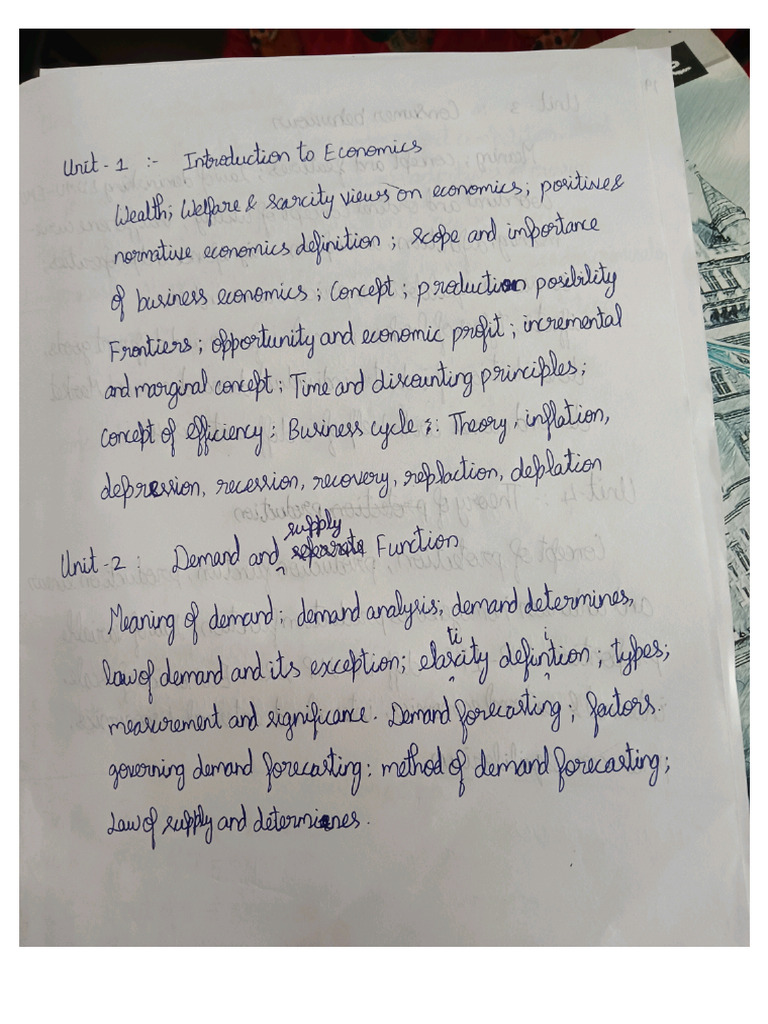 Unit - 1 :- Introduction to Economics
Wealth; Welfare & Scarcity views on economics; positive &
normative economics definition; scope and importance
of business economics; concept; production posibility
Frontiers; opportunity and economic profit; incremental
and marginal concept; Time and discounting principles;
concept of efficiency; Business cycle :: Theory, inflation,
depression, recession, recovery, reflaction, deflation
supply
Unit - 2 : Demand and Function
Meaning of demand; demand analysis; demand determines,
law of demand and its exception; elasticity definition; types;
measurement and significance. Demand forecasting; factors.
governing demand forecasting; method of demand forecasting;
Law of supply and determines.